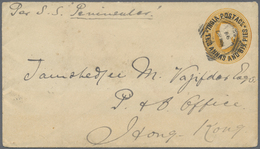 Per S.S. "Peninsular"
INDIA POSTAGE
TWO ANNAS AND SIX PIES
Jamshedjee M. Vajifdar Esq.
P & O Office
Hong Kong